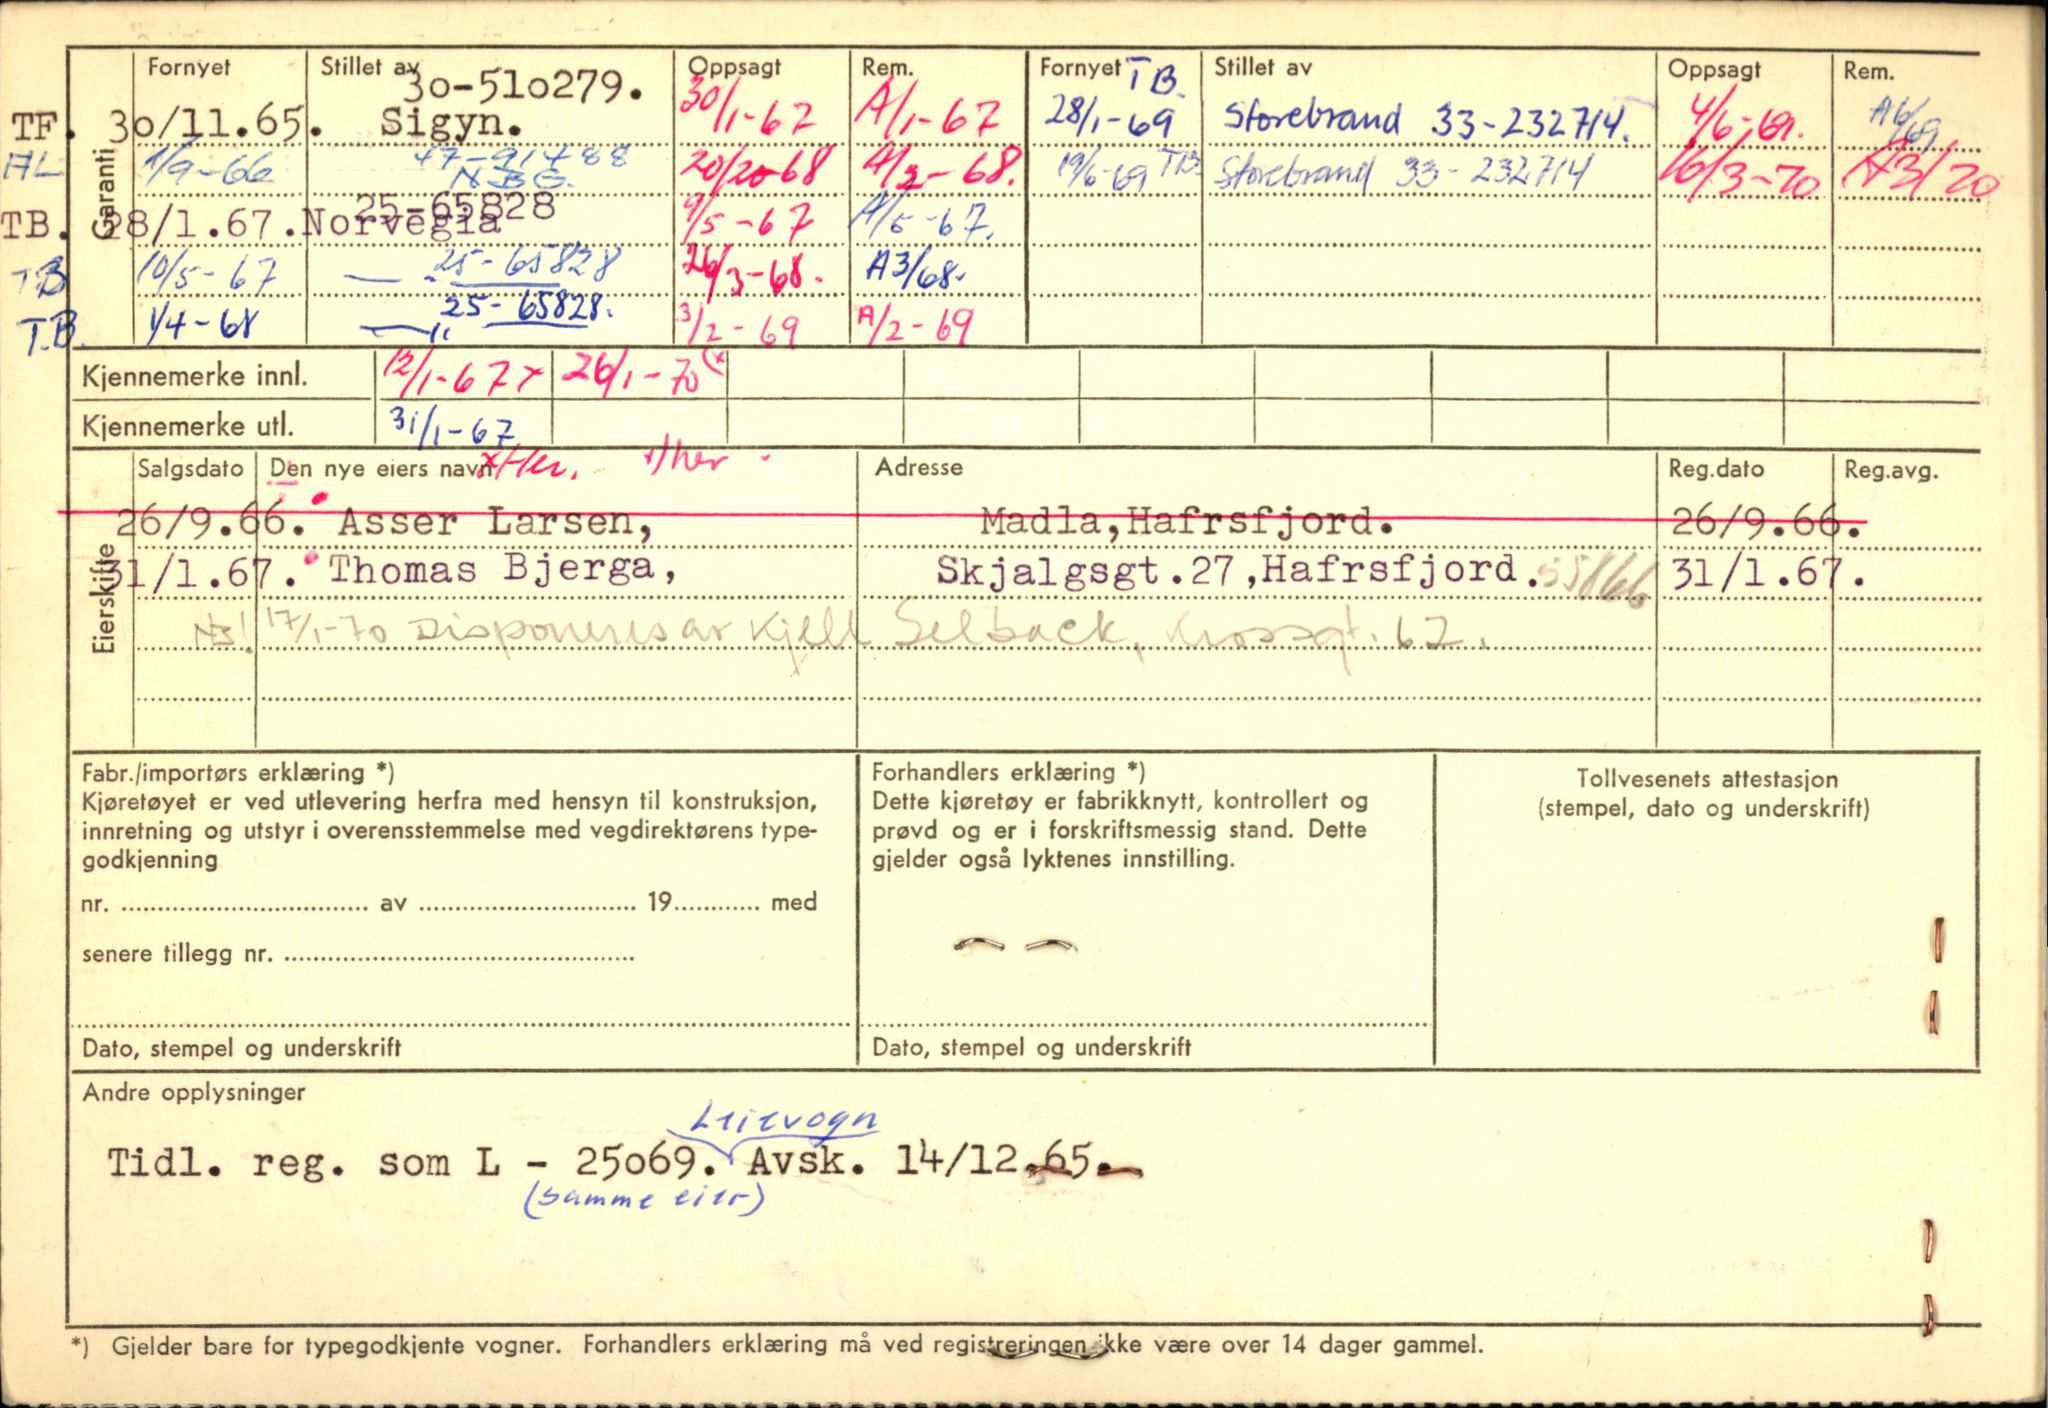 Fornyet Stillet av Oppsagt Rem. Fornyet Stillet av Oppsagt Rem.
Garanti
TF. 30/11.65. 30-510279. Sigyn. 30/1-67 A/1-67 TB. 28/1-69 Storebrand 33-232714. 4/6-69. A6/69
AL 1/9-66 47-91488 NBG. 20/2-68 A/2-68. 19/6-69 TB. Storebrand 33-232714 16/3-70 A3/70
TB. 28/1.67. Norvegia 25-65828 9/5-67 A/5-67.
TB 10/5-67 — 25-65828 26/3-68. A3/68.
T.B. 1/4-68 — " 25-65828. 3/2-69 A/2-69
Kjennemerke innl. 12/1-67 x 26/1-70 (x
Kjennemerke utl. 31/1-67
Eierskifte
Salgsdato Den nye eiers navn Adresse Reg.dato Reg.avg.
x Her. x) her.
26/9.66. Asser Larsen, Madla, Hafrsfjord. 26/9.66.
31/1.67. Thomas Bjerga, Skjalgsgt.27, Hafrsfjord. 55866 31/1.67.
Ns! 17/1-70 Disponeres av Kjell Selback, Krossgt. 62.
Fabr./importørs erklæring *)
Kjøretøyet er ved utlevering herfra med hensyn til konstruksjon,
innretning og utstyr i overensstemmelse med vegdirektørens type-
godkjenning
nr. av 19 med
senere tillegg nr.
Dato, stempel og underskrift
Forhandlers erklæring *)
Dette kjøretøy er fabrikknytt, kontrollert og
prøvd og er i forskriftsmessig stand. Dette
gjelder også lyktenes innstilling.
Dato, stempel og underskrift
Tollvesenets attestasjon
(stempel, dato og underskrift)
Andre opplysninger
Leievogn
Tidl. reg. som L - 25069. Avsk. 14/12.65.
(samme eier)
*) Gjelder bare for typegodkjente vogner. Forhandlers erklæring må ved registreringen ikke være over 14 dager gammel.